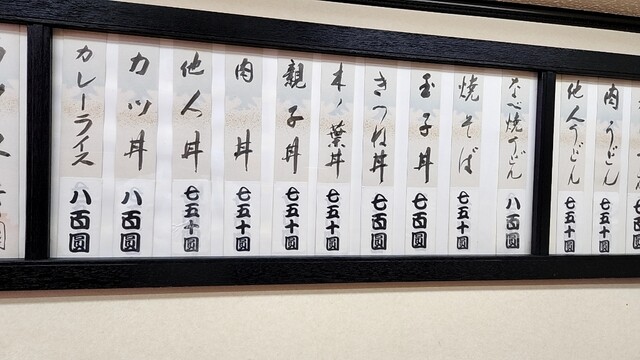 肉うどん 七五十圓
他人うどん 七五十圓
なべ焼うどん 八百圓
焼そば 七五十圓
玉子丼 七百圓
きつね丼 七百圓
木ノ葉丼 七五十圓
親子丼 七五十圓
肉丼 七五十圓
他人丼 七五十圓
カツ丼 八百圓
カレーライス 八百圓